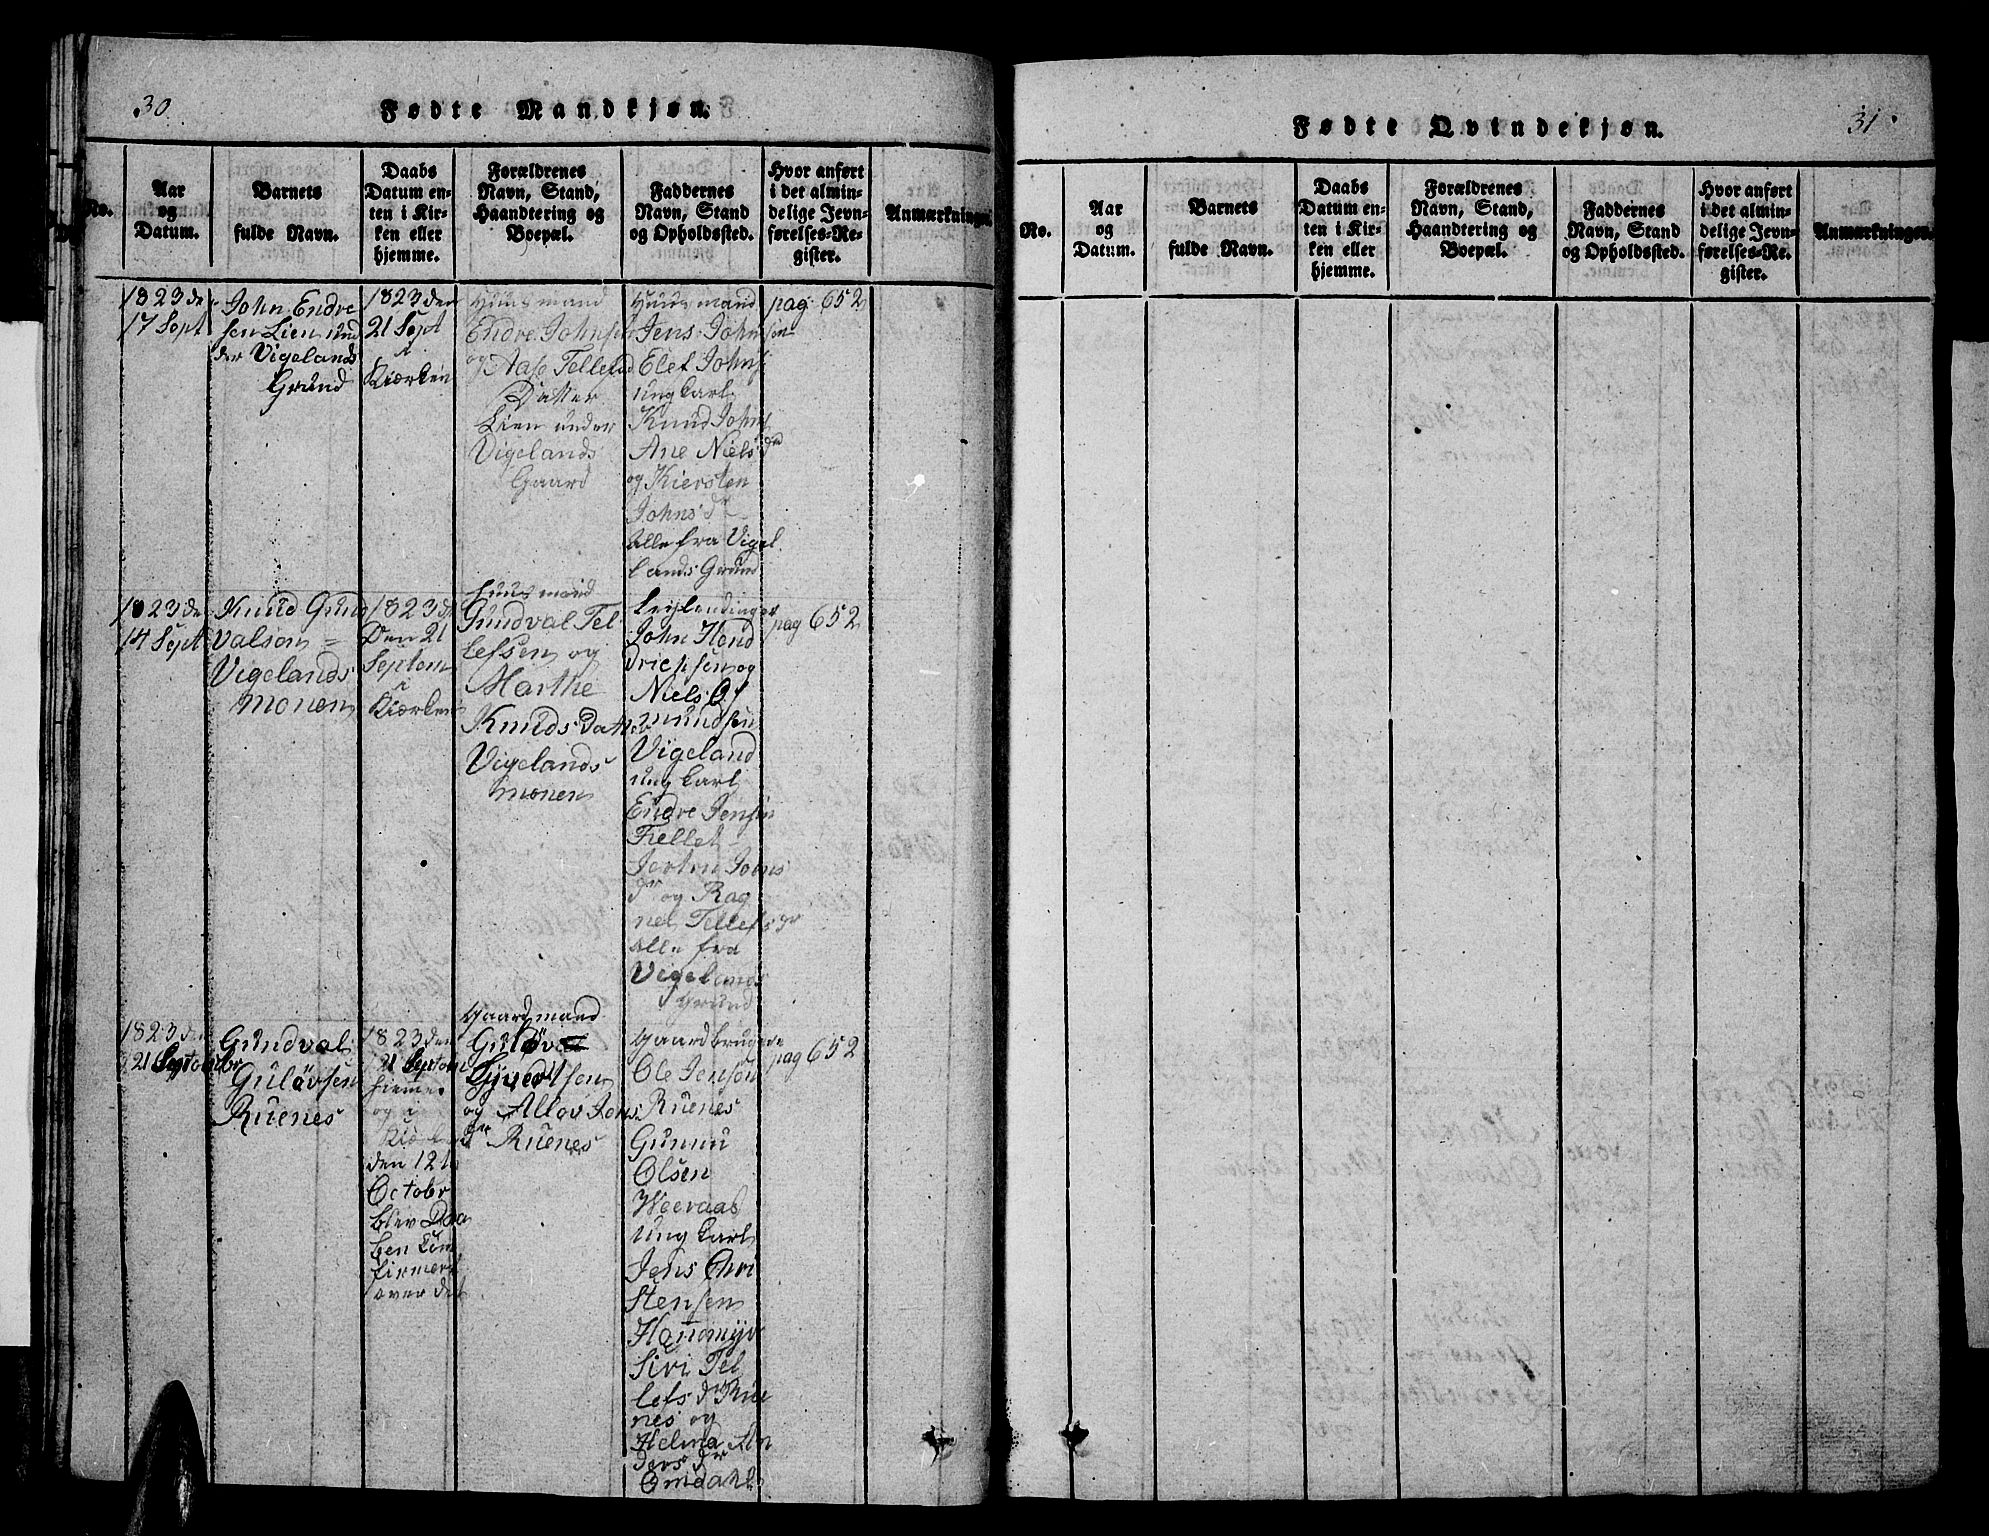 30
Fødte Mandkjøn.
No.
Aar
og
Datum.
Barnets
fulde Navn.
Daabs
Datum en-
ten i Kir-
ken eller
hjemme.
Forældrenes
Navn, Stand,
Haandtering og
Boepæl.
Faddernes
Navn, Stand
og Opholdssted.
Hvor anført
i det almin-
delige Jevn-
førelses-Re-
gister.
Anmærkninger.
1823 de
17 Sept
John Endre
sen Lien und
der Vigelands
Grund
1823 den
21 Sept
i
Kiørken
Huusmand
Endre Johnsen
og Aase Tellefsd
Datter
Lien under
Vigelands
Gaard
Huusmand
Jens Johnsen
Elef Johns
ung Carl
Knud Johns
Ane Niels d
og Kiersten
Johns d
alle fra Vigel
lands Grund
pag: 652
1823 de
14 Sept
Knud Grund
valson =
Vigelands
monen
1823 d
Den 21
Septem
i
Kiørken
Huusmand
Gundval Tel
lefsen og
Marthe
Knuds Datter
Vigelands
monen
John Hend
richsen og
Niels
mundsen
Vigeland
ung Carl
Endre Jensen
Fiellet
Johns
dr og Rag
nel Tellefs dr
alle fra
Vigelands
Grund
pag 652
1823 den
21 Septembr
Gundval
Guløvsen
Ruenes
1823 den
21 Septem
hiemme
og i
den 12te
Octobr
blev Daa
ben Con
firmert
over det
Gaardmand
Guløv
Syvertsen
og Allov Jons
dr Ruenes
Gaardbrugende
Ole Jenson
Ruenes
Gunnu
Olsen
Weeraas
ung Carl
Jens Chri
stensen
Hannemyr
Sivi Tel
lefs dr Rue
nes og
Helma An
ders dr
Omdahl
pag 652
31
Fødte Qvindekjøn.
No.
Aar
og
Datum.
Barnets
fulde Navn.
Daabs
Datum en-
ten i Kir-
ken eller
hjemme.
Forældrenes
Navn, Stand,
Haandtering og
Boepæl.
Faddernes
Navn, Stand
og Opholdssted.
Hvor anført
i det almin-
delige Jevn-
førelses-Re-
gister.
Anmærkninger.